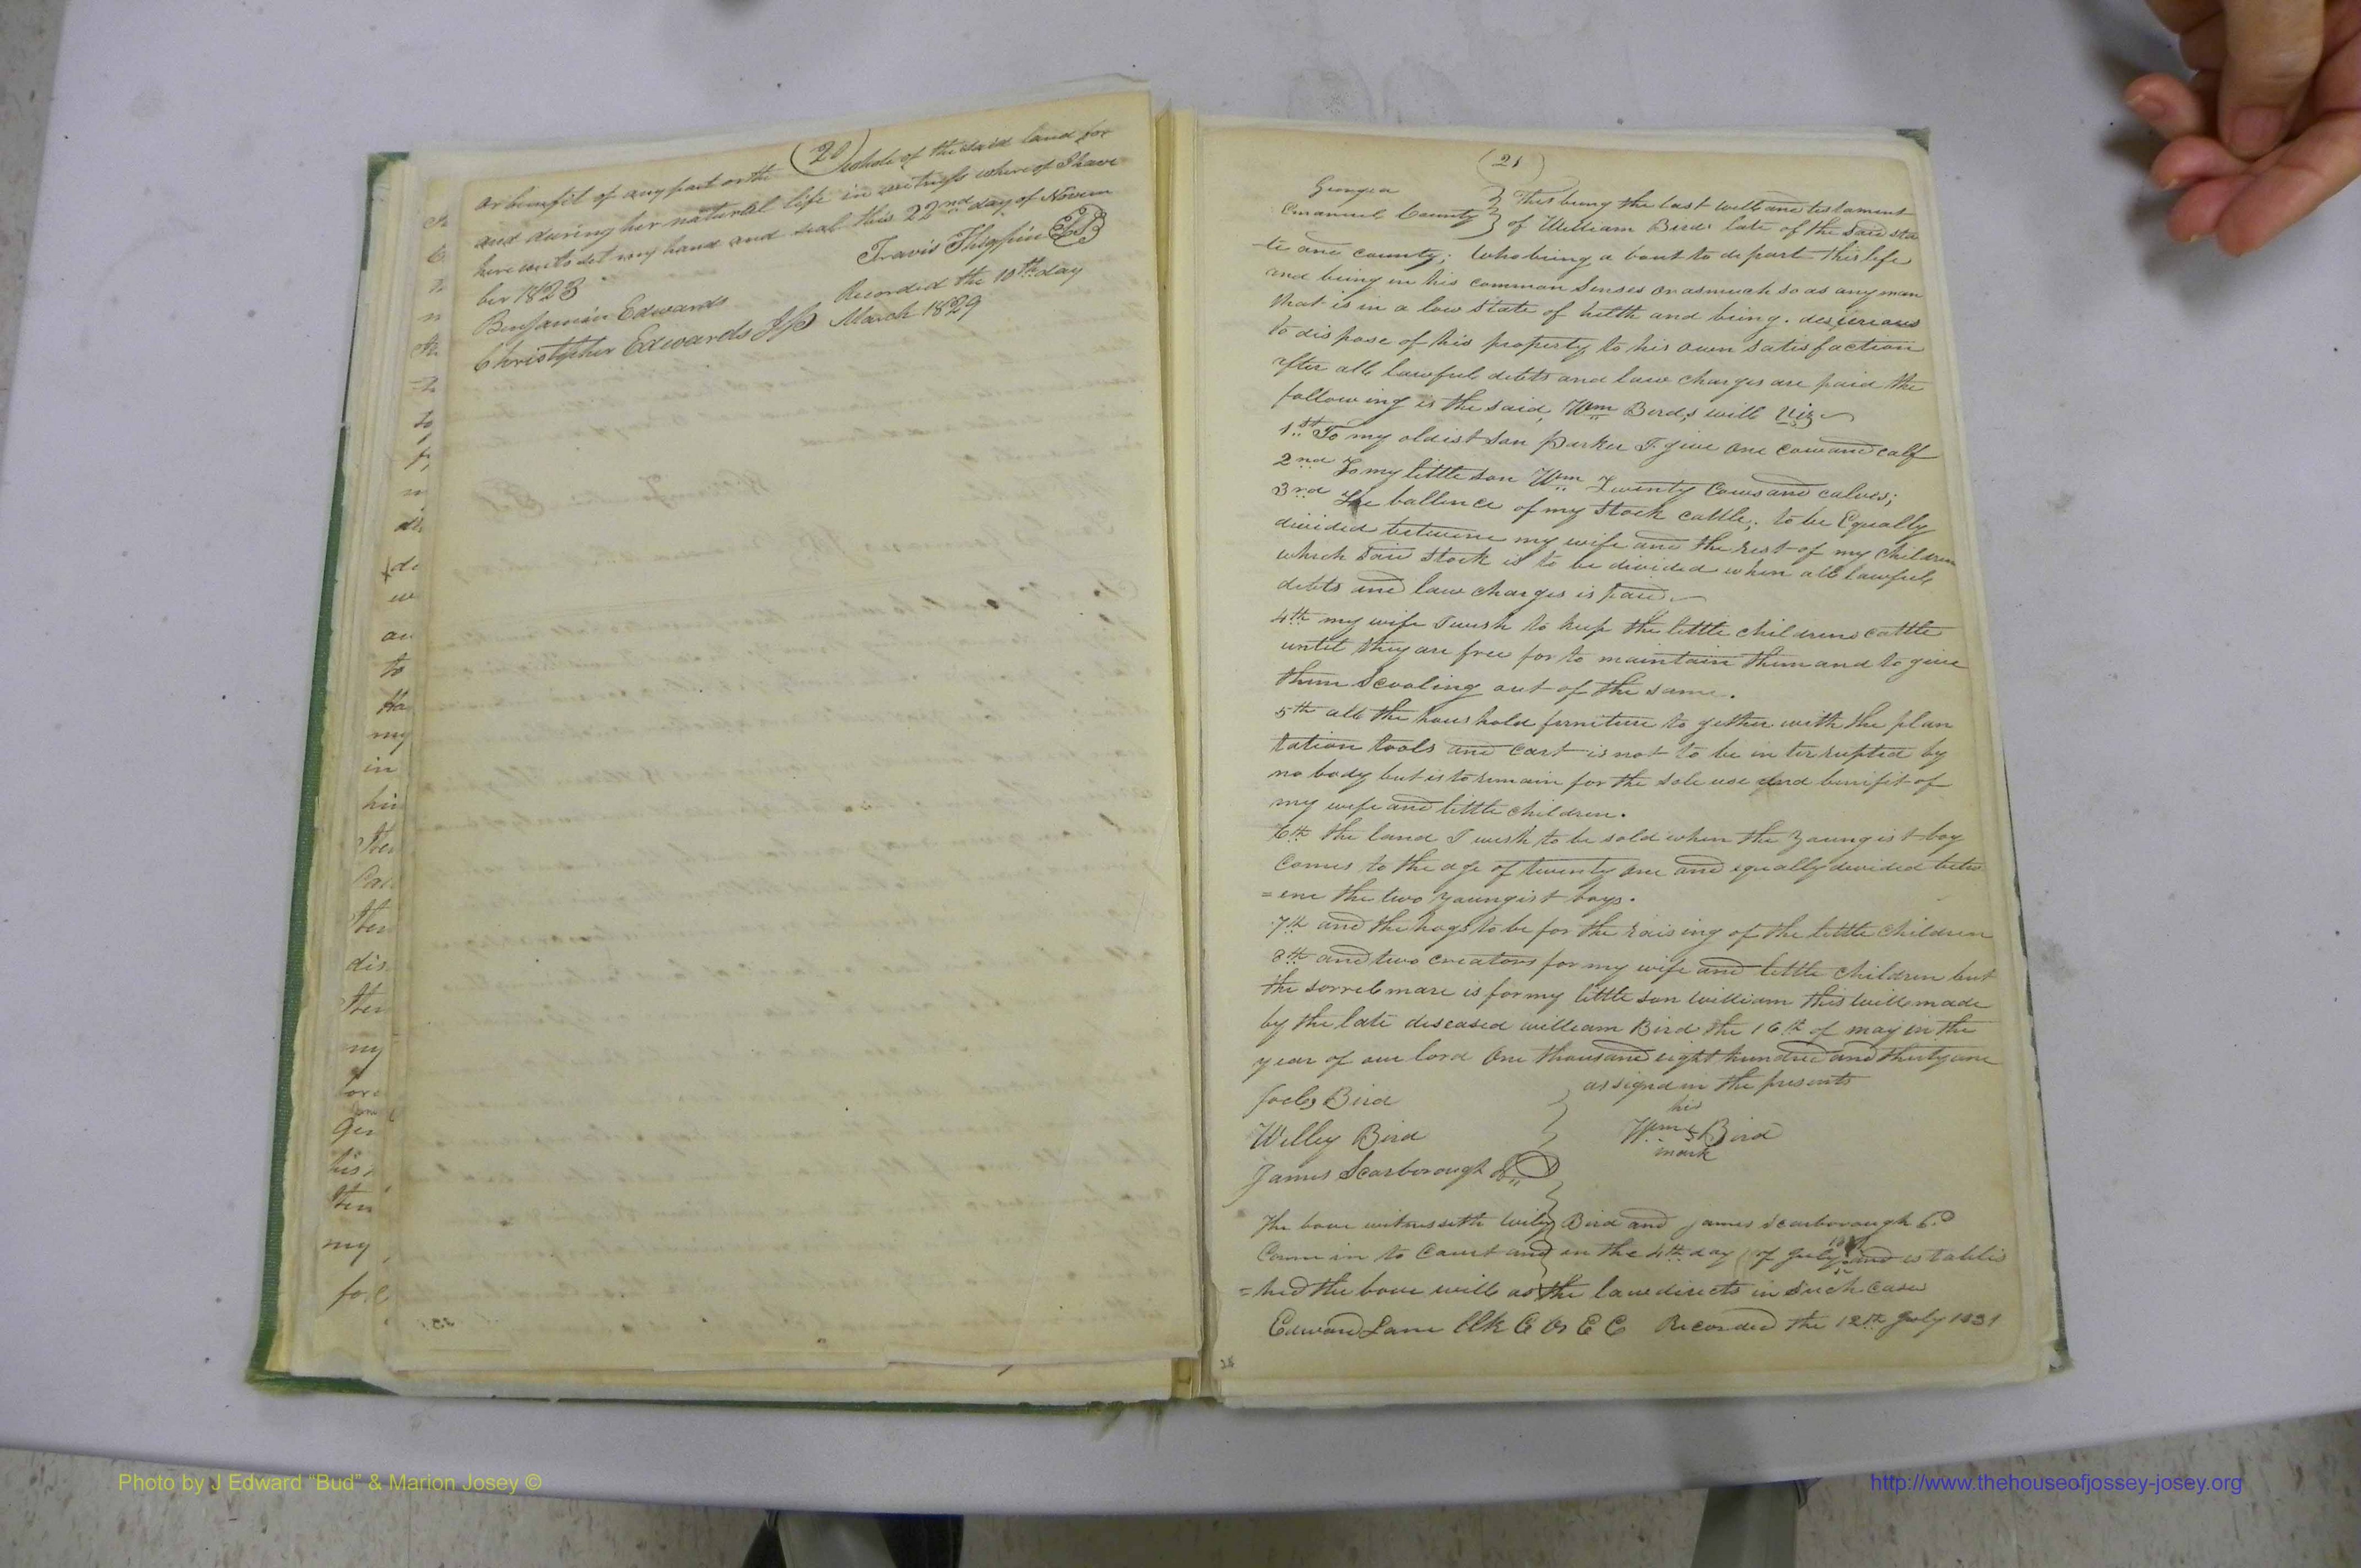 (20)
or benefit of any part or the whole of the said land for
and during her natural life in witness whereof I have
here unto set my hand and seal this 22nd day of Novem
ber 1823
Travis Thigpin
Benjamin Edwards
Recorded the 10th day
Christopher Edwards JP March 1829
(21)
Georgia
Emanuel County
This being the last will and testament
of William Bird late of the said sta
te and county; Who being a bout to depart this life
and being in his common senses or as much so as any man
that is in a low state of helth and being. desierious
to dis pose of his property to his own satisfaction
after all lawful debts and law charges are paid the
following is the said, Wm Bird,s will Viz
1st To my oldist son Parker I give one cow and calf
2nd To my little son Wm Twenty Cows and calves;
3rd The ballence of my stock cattle; to be Equally
divided betweene my wife and the rest of my children
which said stock is to be divided when all lawful
debts and law charges is paid
4th my wife I wish to keep the little childrens cattle
until they are free for to maintain them and to give
them Scooling out of the same.
5th all the hous hold ferniture to gether with the plan
tation tools and cart is not to be in terrupted by
no body but is to remain for the sole use and benifit of
my wife and little children.
6th the land I wish to be sold when the youngist boy
Comes to the age of twenty one and equally devided betw
=ene the two youngist boys.
7th and the hogs to be for the raising of the little children
8th and two creators for my wife and little children but
the sorrel mare is for my little son William this will made
by the late diseased william Bird the 16th of may in the
year of our lord One thousand eight hundred and thirty one
as signd in the presents
Wiley Bird
his
Wm Bird
mark
James Scarborough
The bove witnesseth Wiley Bird and James Scarborough
Came in to Court and on the 4th day of July and establis
=hed the bove will as the law directs in such case
Edward Lane Clk C O E C Recorded the 12th July 1831
Photo by J Edward “Bud” & Marion Josey ©
http://www.thehouseofjossey-josey.org